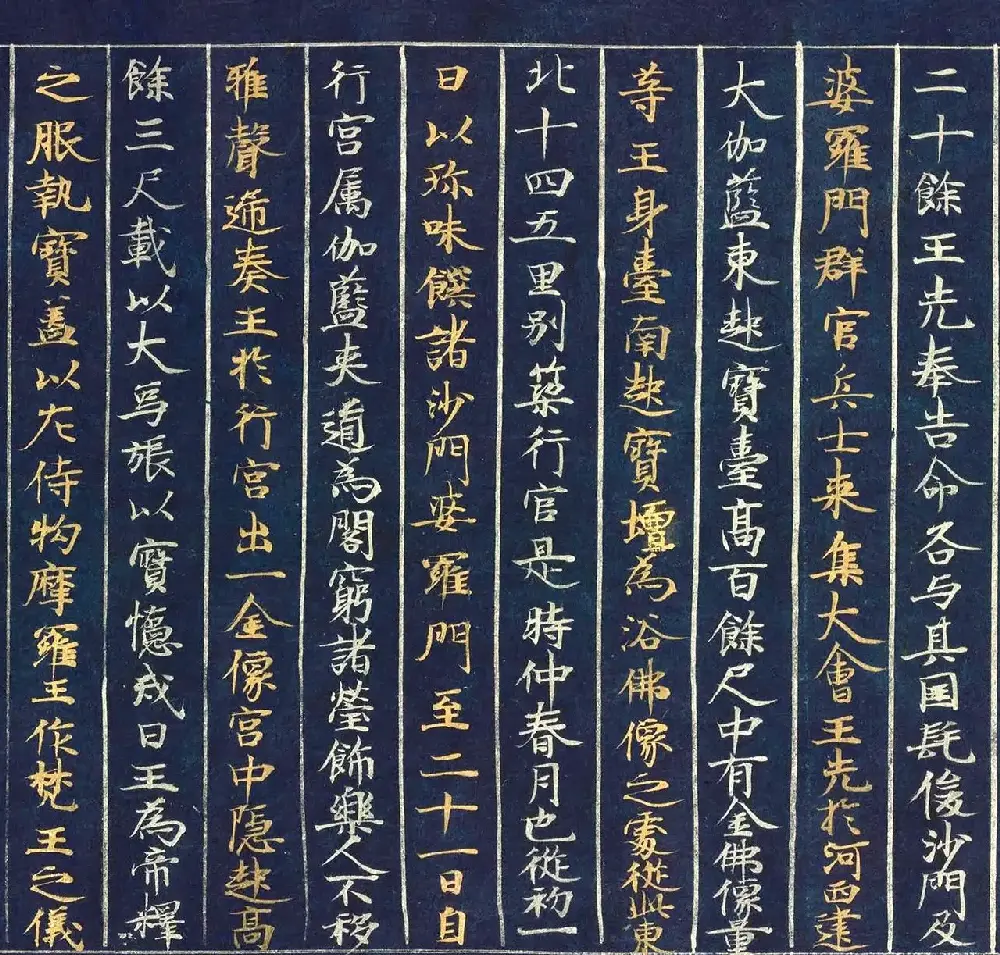 二十餘王先奉告命各与其国髦俊沙門及
婆羅門群官兵士来集大會王先於河西建
大伽藍東起寶臺高百餘尺中有金佛像量
等王身臺南起寶壇為浴佛像之處從此東
北十四五里别築行官是時仲春月也從初一
日以珎味饌諸沙門婆羅門至二十一日自
行宫属伽藍夾道為閣窮諸瑩飾樂人不移
雅聲逓奏王於行宫出一金像宫中隠起高
餘三尺載以大象張以寶幰戒日王為帝釋
之服執寶盖以左侍物摩羅王作梵王之儀